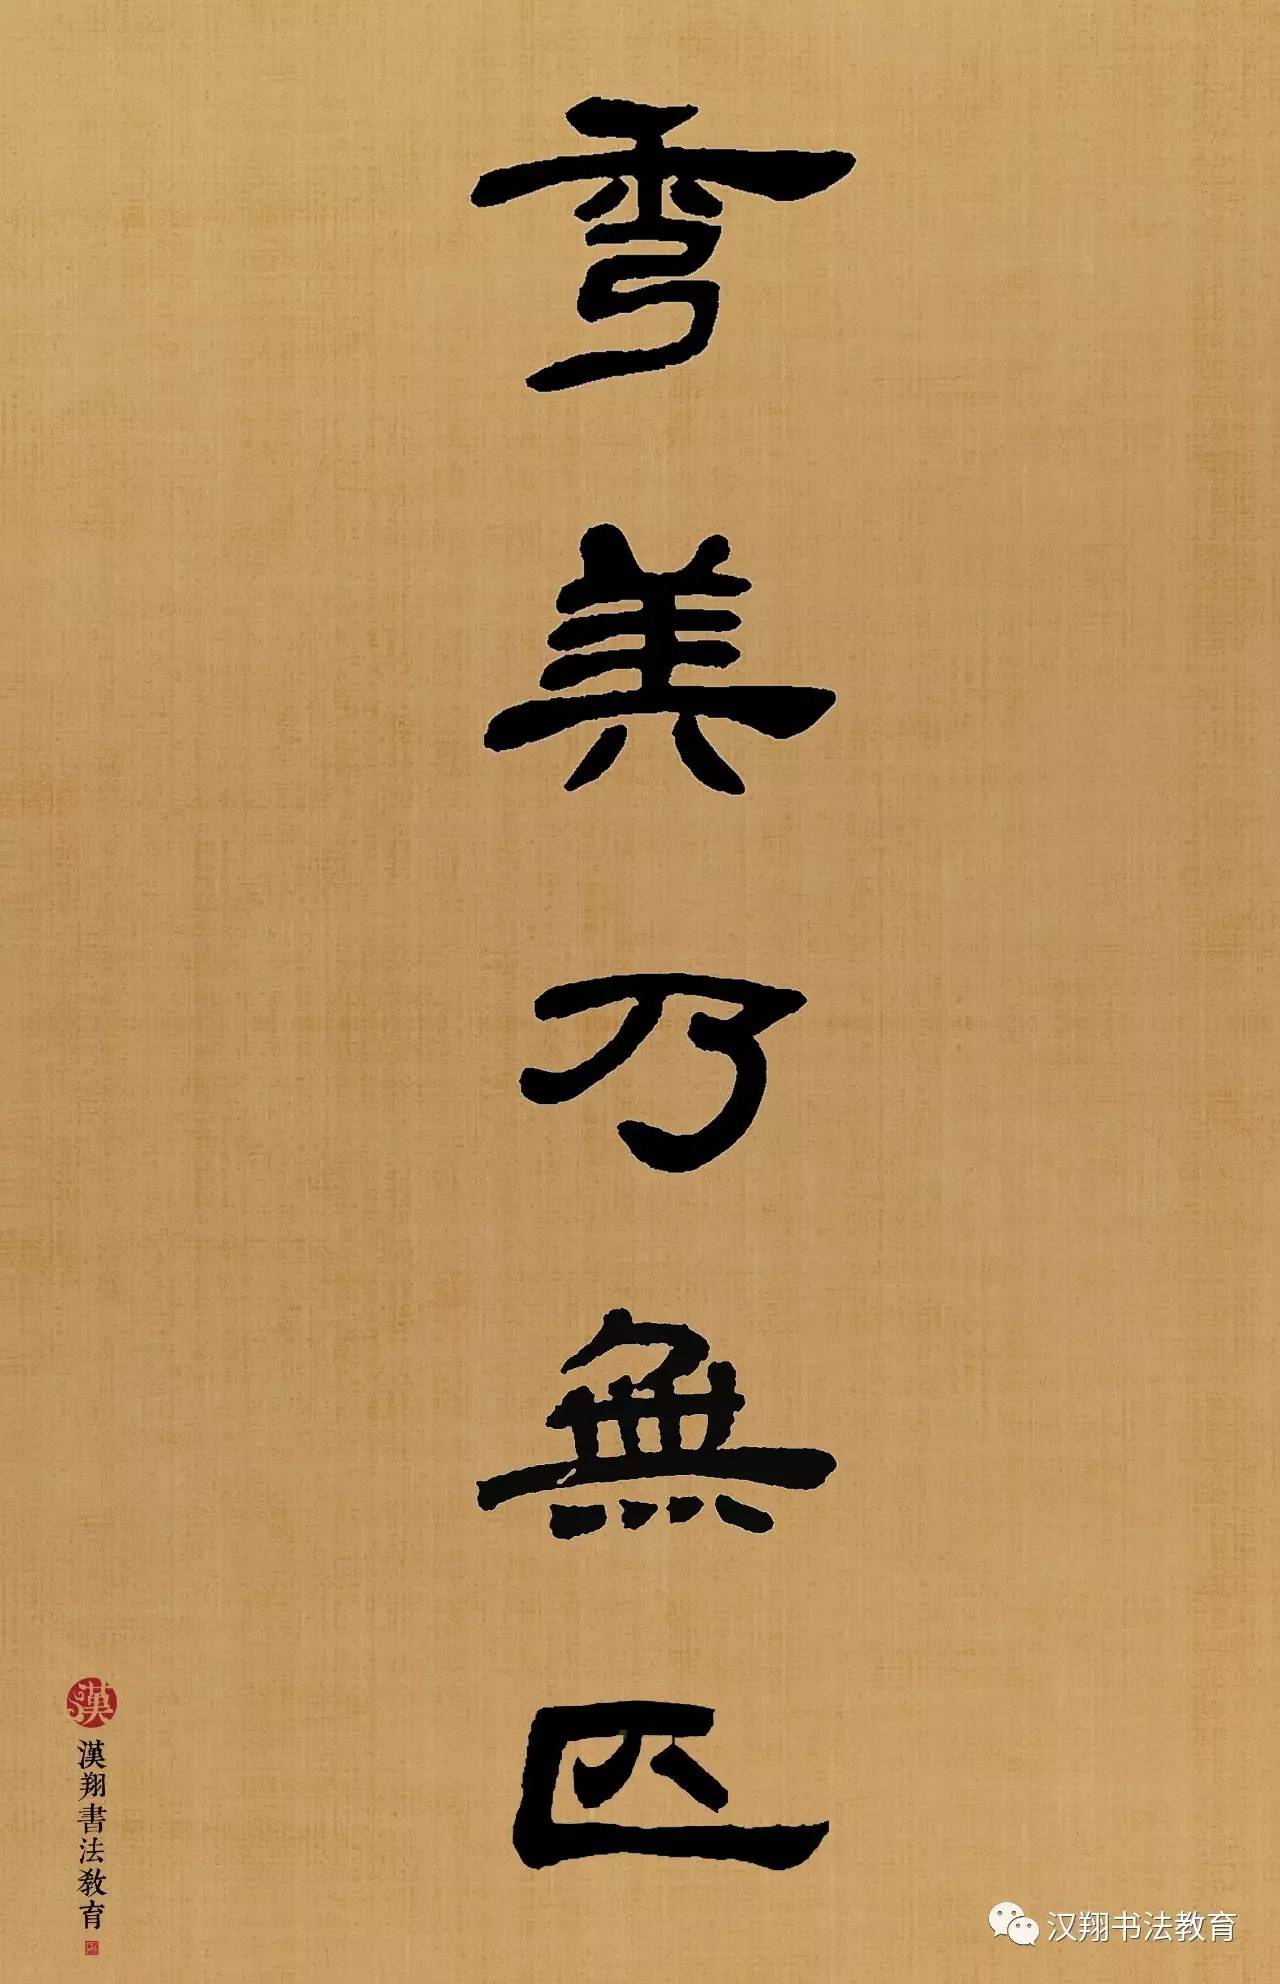 秀美乃無匹
漢
漢翔書法教育
汉翔书法教育